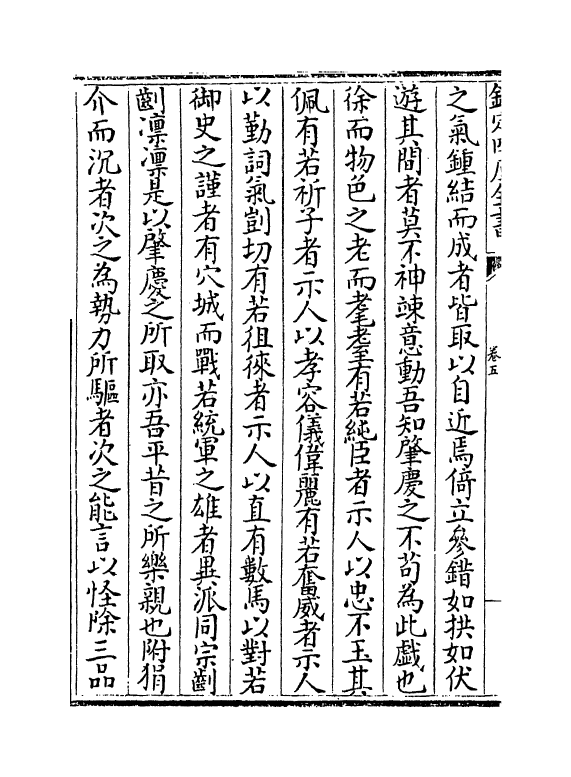 欽定四庫全書
卷五
之氣鍾結而成者皆取以自近焉倚立參錯如拱如伏
遊其間者莫不神竦意動吾知肇慶之不苟為此戲也
徐而物色之老而耄耋有若純臣者示人以忠不玉其
佩有若祈子者示人以孝容儀偉麗有若奮威者示人
以勤詞氣剴切有若徂徠者示人以直有數馬以對若
御史之謹者有穴城而戰若統軍之雄者異派同宗劘
劘凛凛是以肇慶之所取亦吾平昔之所樂親也附狷
介而沉者次之為勢力所驅者次之能言以怪除三品